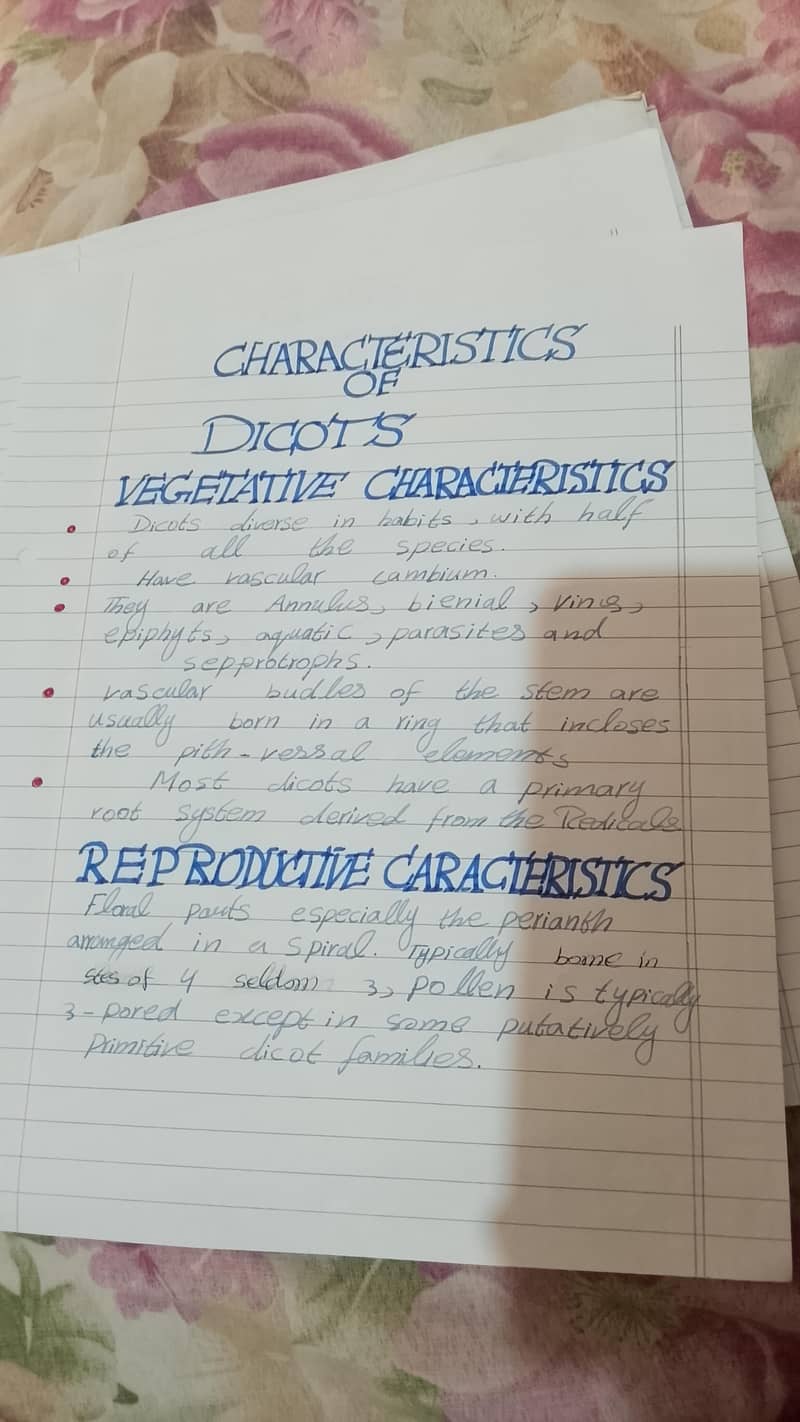 CHARACTERISTICS
OF
DICOTS
VEGETATIVE CHARACTERISTICS
Dicots diverse in habits, with half
of all the species.
Have vascular cambium.
They are Annulus, bienial, vines,
epiphyts, aquatic, parasites and
sepprotrophs.
vascular budles of the stem are
usually born in a ring that incloses
the pith-vessal elements
Most dicots have a primary
root system derived from the Redicals
REPRODUCTIVE CARACTERISTICS
Floral pauts especially the perianth
arranged in a spiral. Typically borne in
of 4 seldom 3, pollen is typically
3-pored except in some putatively
primitive dicot families.